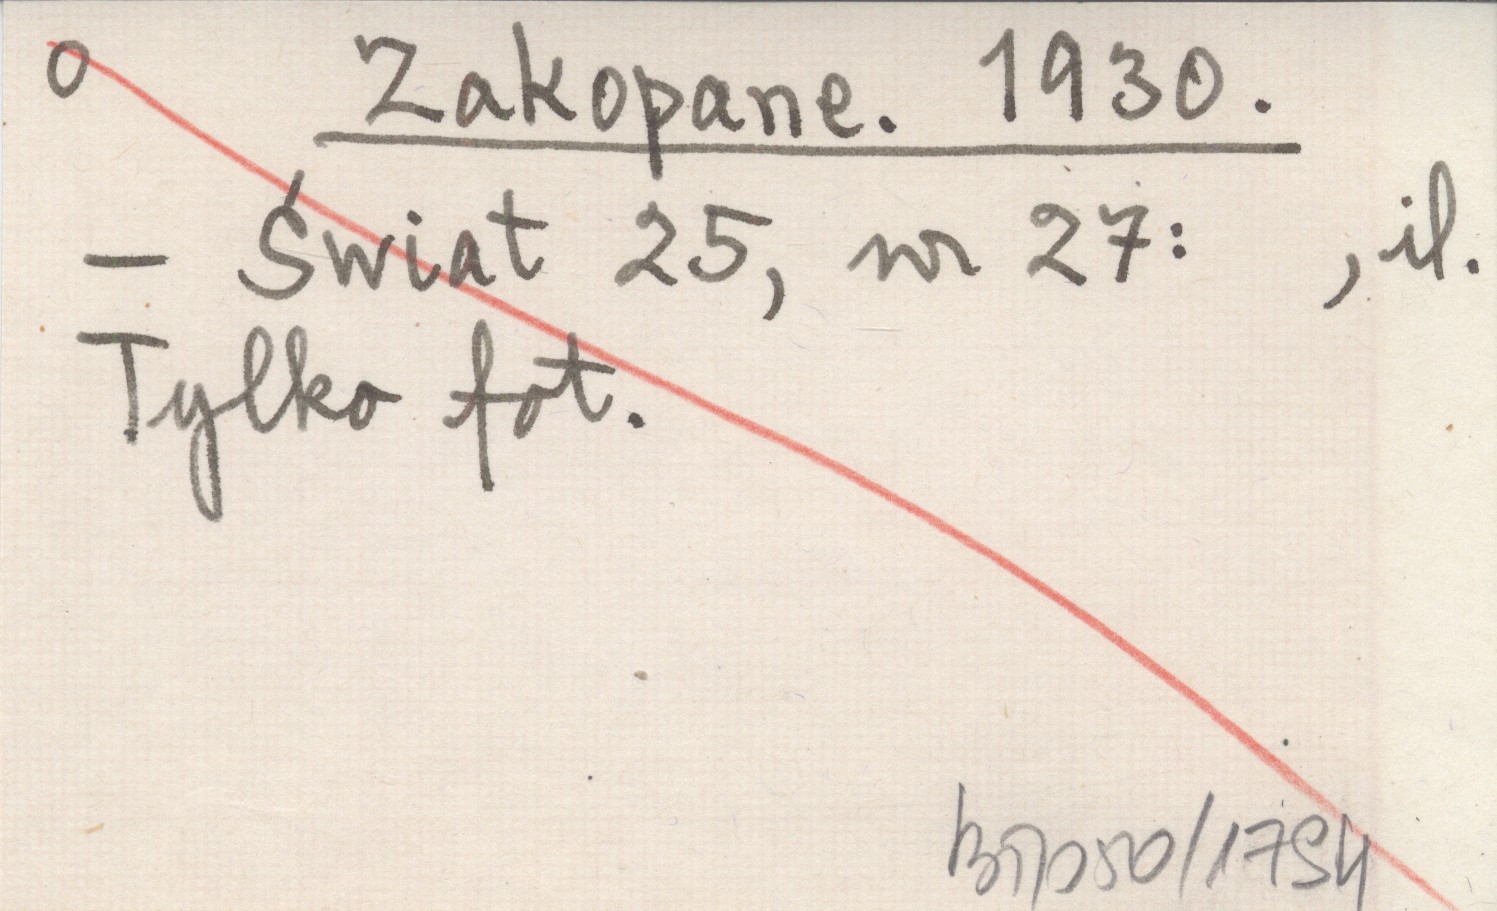 O
Zakopane. 1930.
- Świat 25, nr 27: , il.
Tylko fot.